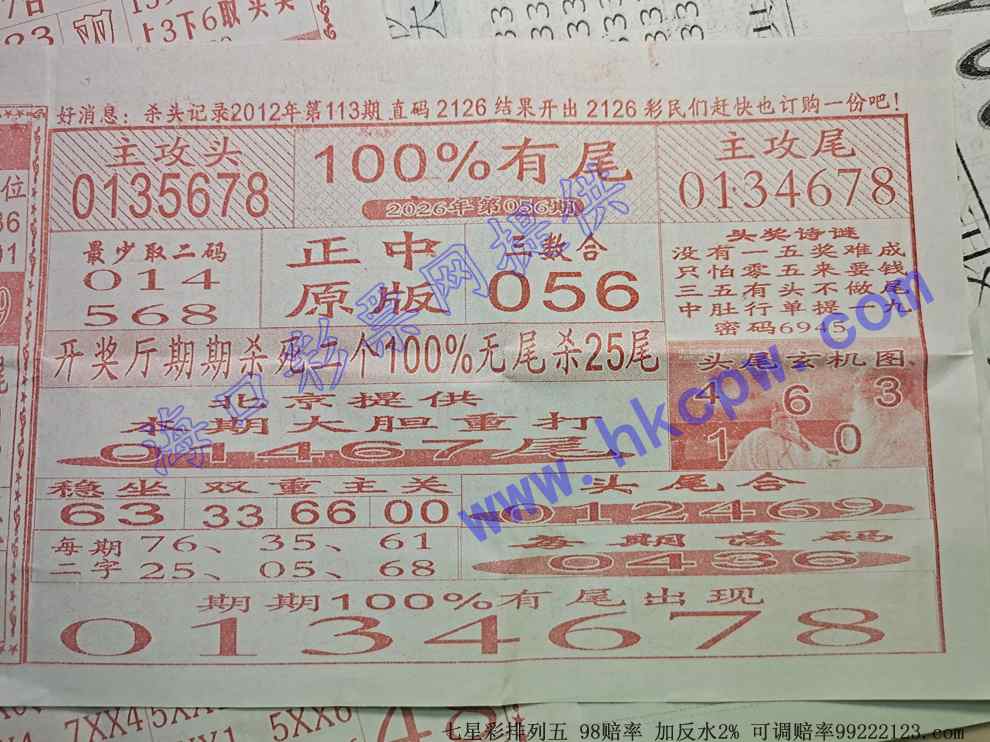 上3下6取头奖
好消息：杀头记录2012年第113期直码2126结果开出2126彩民们赶快也订购一份吧！
主攻头
0135678
100%有尾
2026年第056期
主攻尾
0134678
最少取二码
014
568
正中
原版
三数合
056
头奖诗谜
没有一五奖难成
只怕零五来要钱
三五有头不做尾
中肚行单提一九
密码6945
开奖厅期期杀死二个100%无尾杀25尾
北京提供
本期大胆重打
01467尾
头尾玄机图
4 6 3
1 0
稳坐
63
双重主关
33 66 00
头尾合
012469
每期
二字
76、35、61
25、05、68
每期荐码
0436
期期100%有尾出现
0134678
7XX4 5XX1 5XX6
海口彩票网提供
www.hkcpw.com
七星彩排列五 98赔率 加反水2% 可调赔率99222123.com